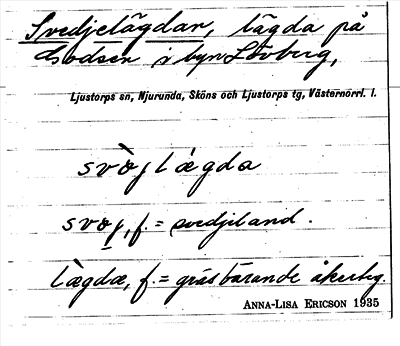 Svedjelägdar, lägda på
Godsen i byn Lövberg,
Ljustorps sn, Njurunda, Sköns och Ljustorps tg, Västernorrl. l.
svòjlágda
svoj, f. = svedjeland.
lægdæ, f. = gräsbärande åkerteg.
ANNA-LISA ERICSON 1935